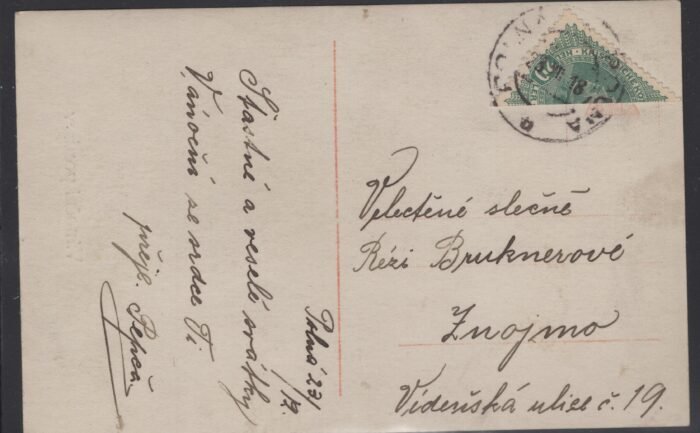 Šťastné a veselé svátky
Vánoční se srdce Ti
přeje Pepča
Polná 23/
12.
Velectěné slečně
Rézi Bruknerové
Znojmo
Vídeňská ulice č. 19.
POLNA
18